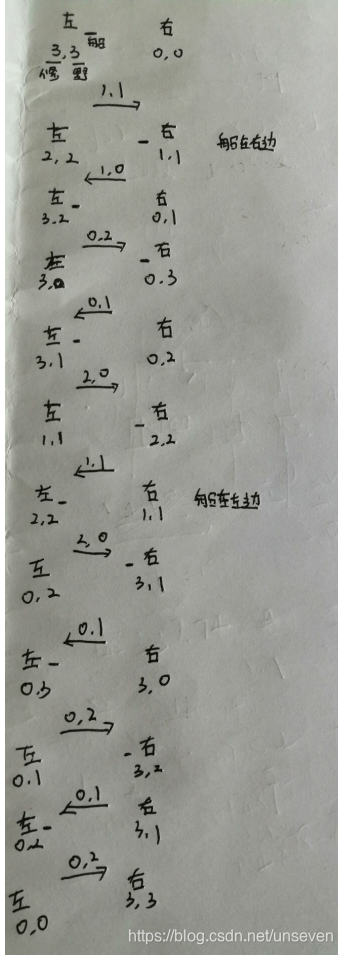 左 船 右
3,3 0,0
修 野
1,1
左 - 右 船在右边
2,2 1,1
1,0
左 - 右
3.2 0,1
0,2
左 - 右
3,0 0.3
0.1
左 - 右
3,1 0,2
2,0
左 - 右
1,1 2,2
1,1
左 - 右 船在左边
2,2 1,1
2,0
左 - 右
0,2 3,1
0.1
左 - 右
0,3 3,0
0,2
左 - 右
0.1 3,2
0,1
左 - 右
0,2 3,1
0,2
左 右
0,0 3,3
https://blog.csdn.net/unseven